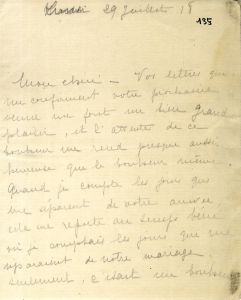 29 Juillet 18
135
Mon chéri – Vos lettres qui
me confirment votre prochaine
venue me font un bien grand
plaisir, et l'attente de ce
bonheur me rend presque aussi
heureuse que le bonheur même.
Quand je compte les jours qui
me séparent de votre arrivée
cela me reporte au temps béni
où je comptais les jours qui me
séparaient de notre mariage
seulement, c'était un bonheur